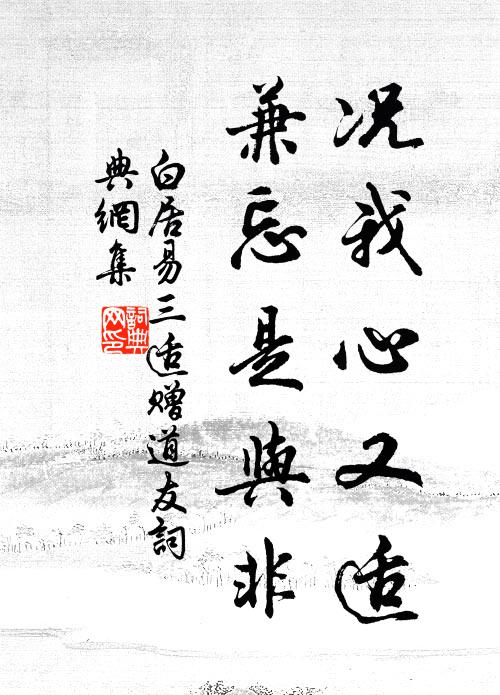 况我心又适
兼忘是與非
白居易三适赠道友詞
典網集
詞典
网印